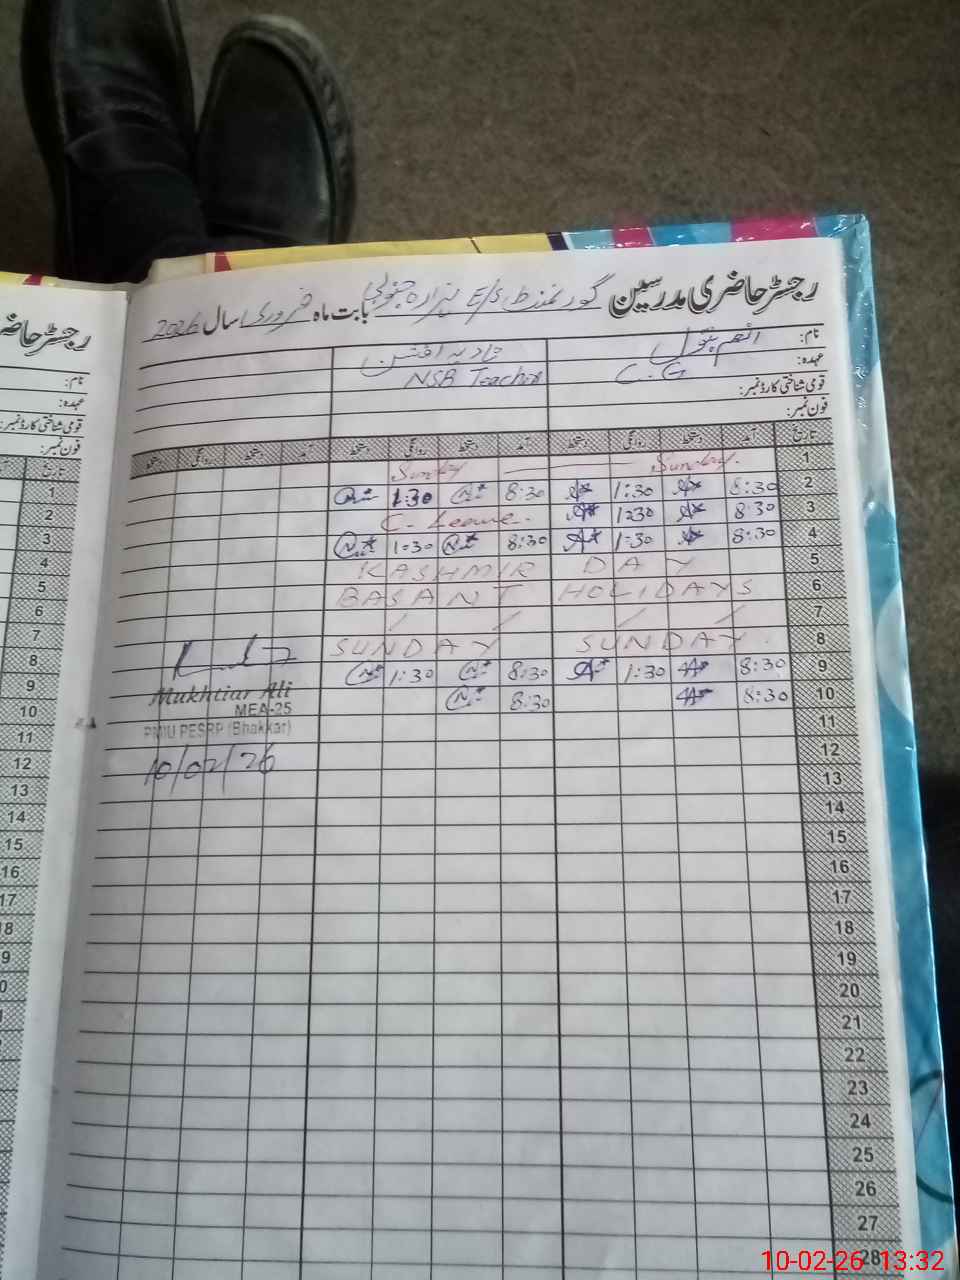 رجسٹر حاضری مدرسین گورنمنٹ E/S بابت ماہ فروری سال 2026
نام: انعم بتول
عہدہ: C.G NSB Teacher
قومی شناختی کارڈ نمبر:
فون نمبر:
تاریخ آمد دستخط روانگی دستخط آمد دستخط روانگی دستخط آمد دستخط روانگی دستخط
1 Sunday. Sunday
2 8:30 1:30 8:30 1:30
3 8:30 1:30 C. Leave.
4 8:30 1:30 8:30 1:30
5 KASHMIR DAY
6 BASANT HOLIDAYS
7
8 SUNDAY SUNDAY.
9 8:30 1:30 8:30 1:30
10 8:30 8:30
11
12
13
14
15
16
17
18
19
20
21
22
23
24
25
26
27
28
Mukhtiar Ali
MEA-25
PMIU PESRP (Bhakkar)
10/02/26
رجسٹر حاضری
نام:
عہدہ:
قومی شناختی کارڈ نمبر:
فون نمبر:
تاریخ
1
2
3
4
5
6
7
8
9
10
11
12
13
14
15
16
17
18
10-02-26 13:32